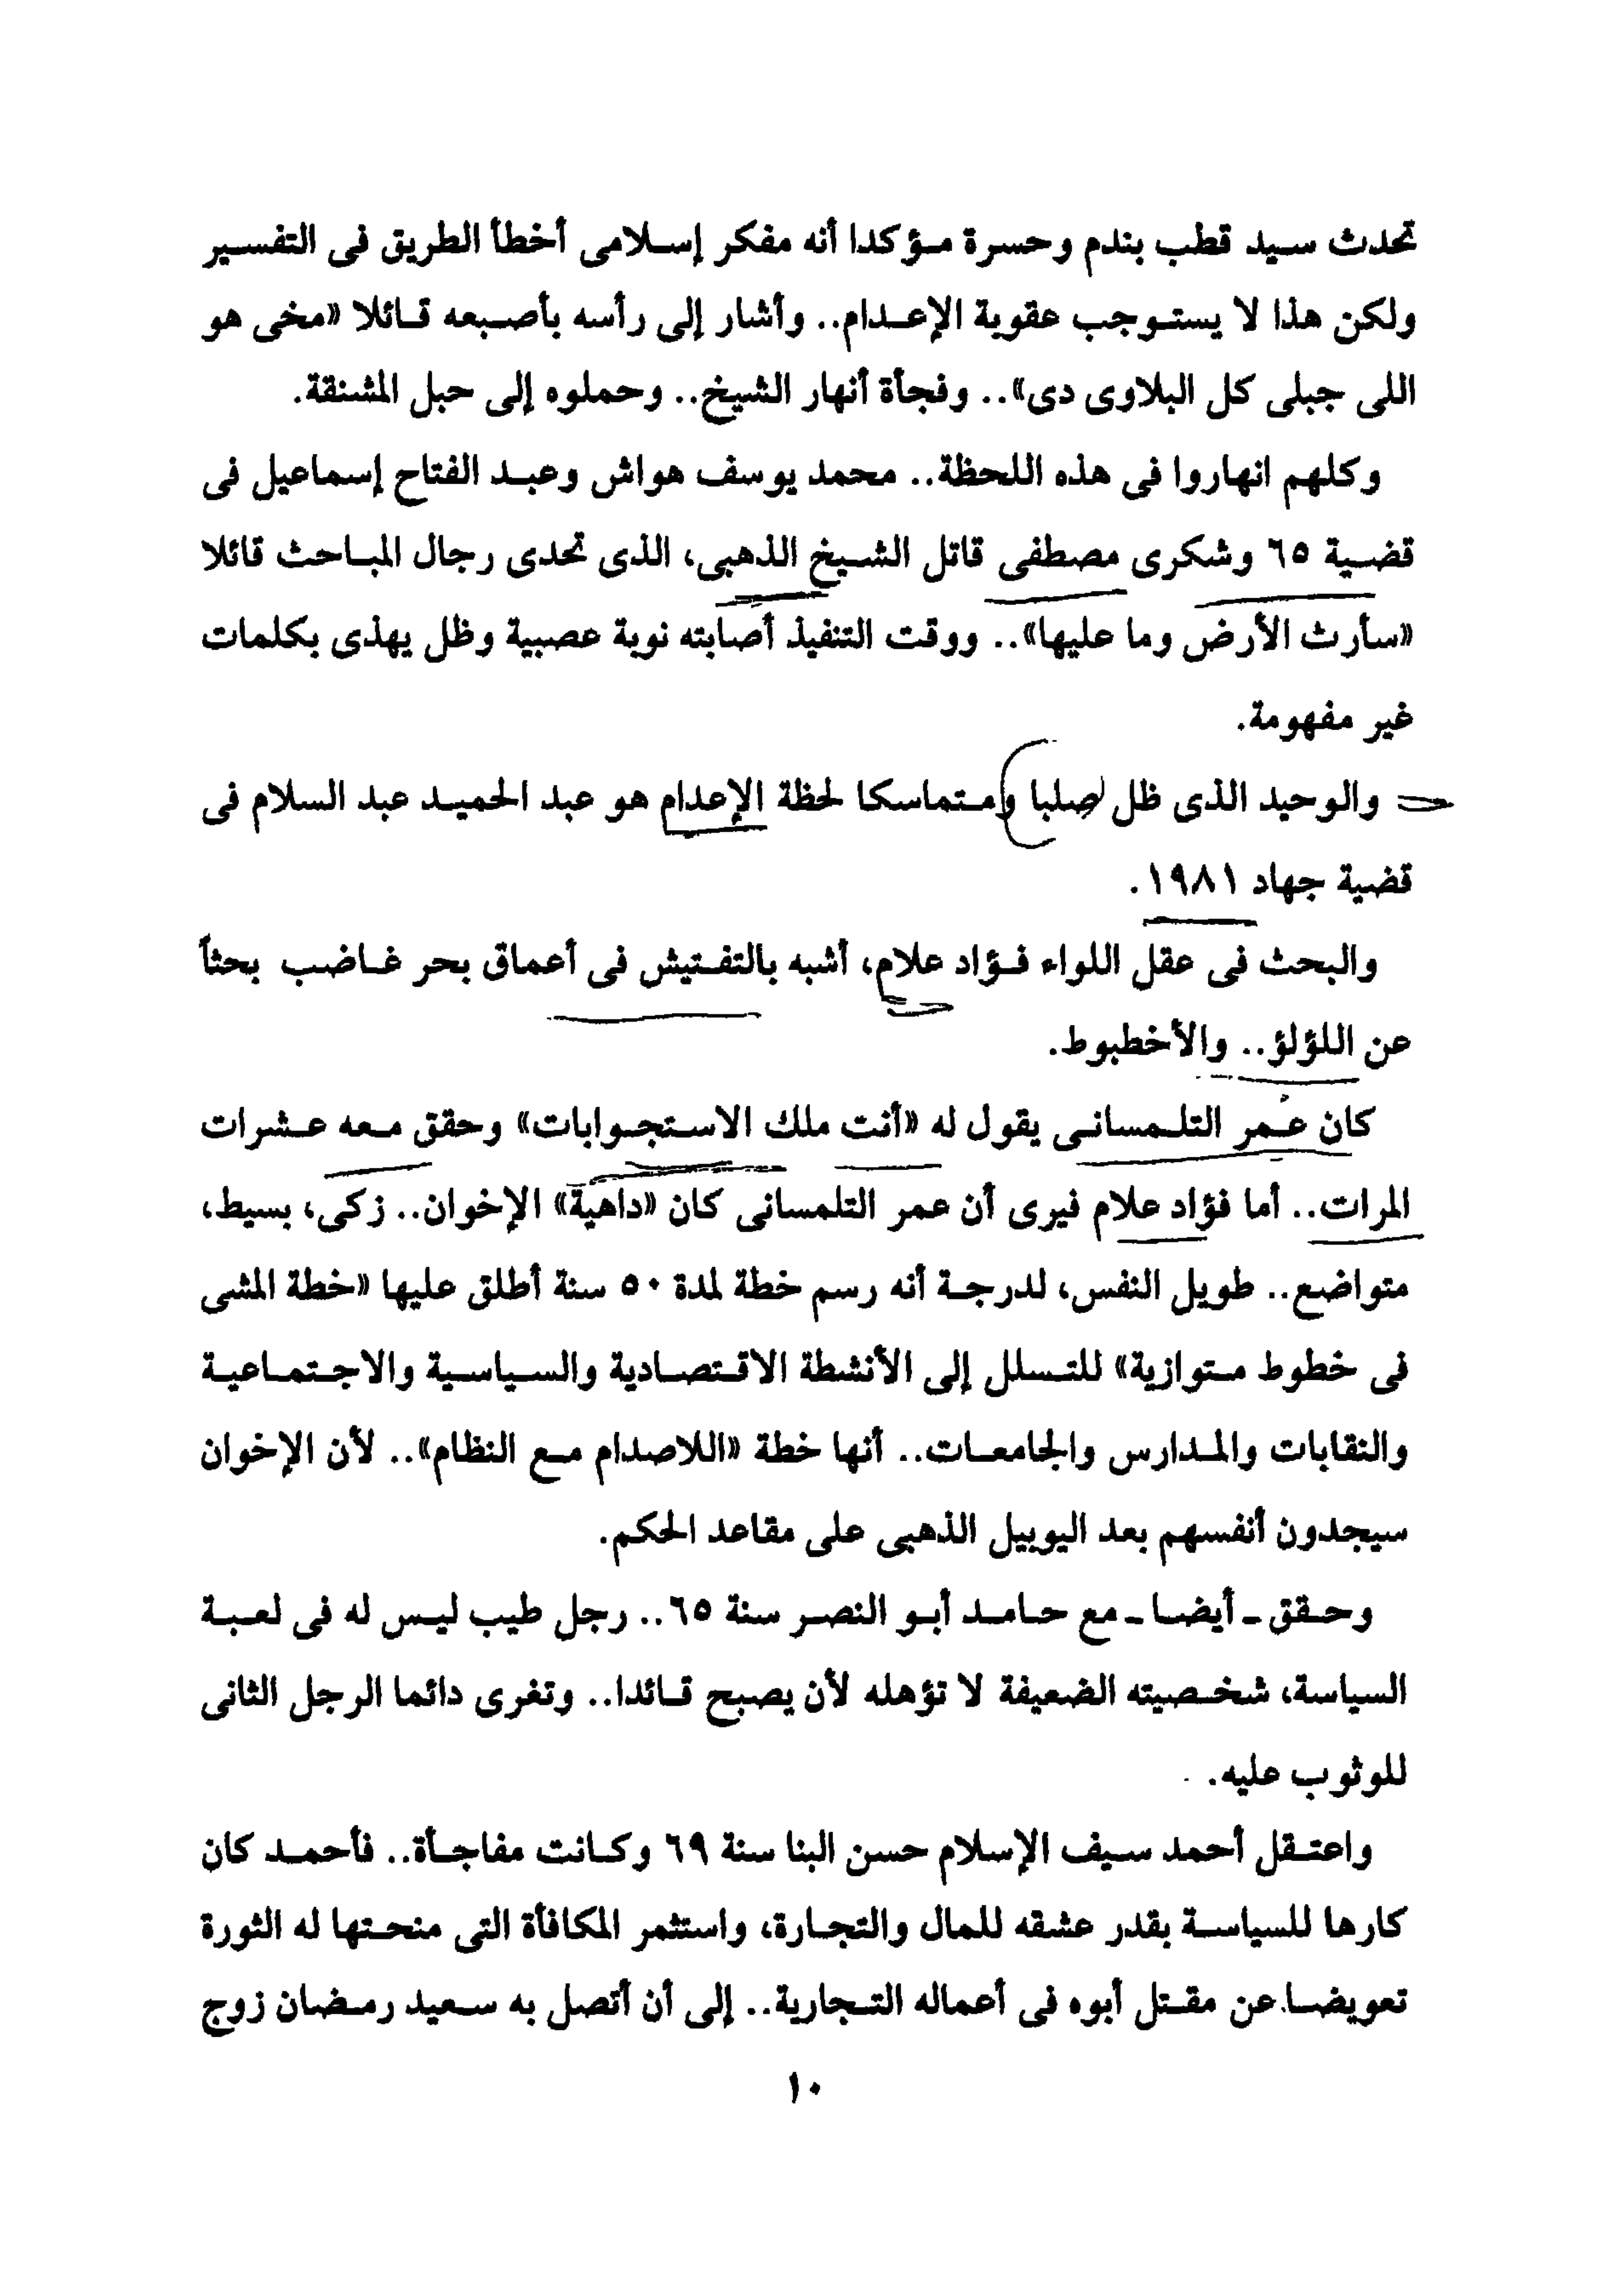 تحدث سيد قطب بندم وحسرة مؤكدا أنه مفكر إسلامى أخطأ الطريق فى التفسير
ولكن هذا لا يستوجب عقوبة الإعدام.. وأشار إلى رأسه بأصبعه قائلا «مخى هو
اللى جبلى كل البلاوى دى».. وفجأة أنهار الشيخ.. وحملوه إلى حبل المشنقة.
وكلهم انهاروا فى هذه اللحظة.. محمد يوسف هواش وعبد الفتاح إسماعيل فى
قضية ٦٥ وشكرى مصطفى قاتل الشيخ الذهبى، الذى تحدى رجال المباحث قائلا
«سأرث الأرض وما عليها».. ووقت التنفيذ أصابته نوبة عصبية وظل يهذى بكلمات
غير مفهومة.
والوحيد الذى ظل صلبا ومتماسكا لحظة الإعدام هو عبد الحميد عبد السلام فى
قضية جهاد ١٩٨١.
والبحث فى عقل اللواء فؤاد علام، أشبه بالتفتيش فى أعماق بحر غاضب بحثاً
عن اللؤلؤ.. والأخطبوط.
كان عمر التلمسانى يقول له «أنت ملك الاستجوابات» وحقق معه عشرات
المرات.. أما فؤاد علام فيرى أن عمر التلمسانى كان «داهية» الإخوان.. زكى، بسيط،
متواضع.. طويل النفس، لدرجة أنه رسم خطة لمدة ٥٠ سنة أطلق عليها «خطة المشى
فى خطوط متوازية» للتسلل إلى الأنشطة الاقتصادية والسياسية والاجتماعية
والنقابات والمدارس والجامعات.. أنها خطة «اللاصدام مع النظام».. لأن الإخوان
سيجدون أنفسهم بعد اليوبيل الذهبى على مقاعد الحكم.
وحقق ـ أيضا ـ مع حامد أبو النصر سنة ٦٥.. رجل طيب ليس له فى لعبة
السياسة، شخصيته الضعيفة لا تؤهله لأن يصبح قائدا.. وتغرى دائما الرجل الثانى
للوثوب عليه.
واعتقل أحمد سيف الإسلام حسن البنا سنة ٦٩ وكانت مفاجأة.. فأحمد كان
كارها للسياسة بقدر عشقه للمال والتجارة، واستثمر المكافأة التى منحتها له الثورة
تعويضا عن مقتل أبوه فى أعماله التجارية.. إلى أن أتصل به سعيد رمضان زوج
١٠